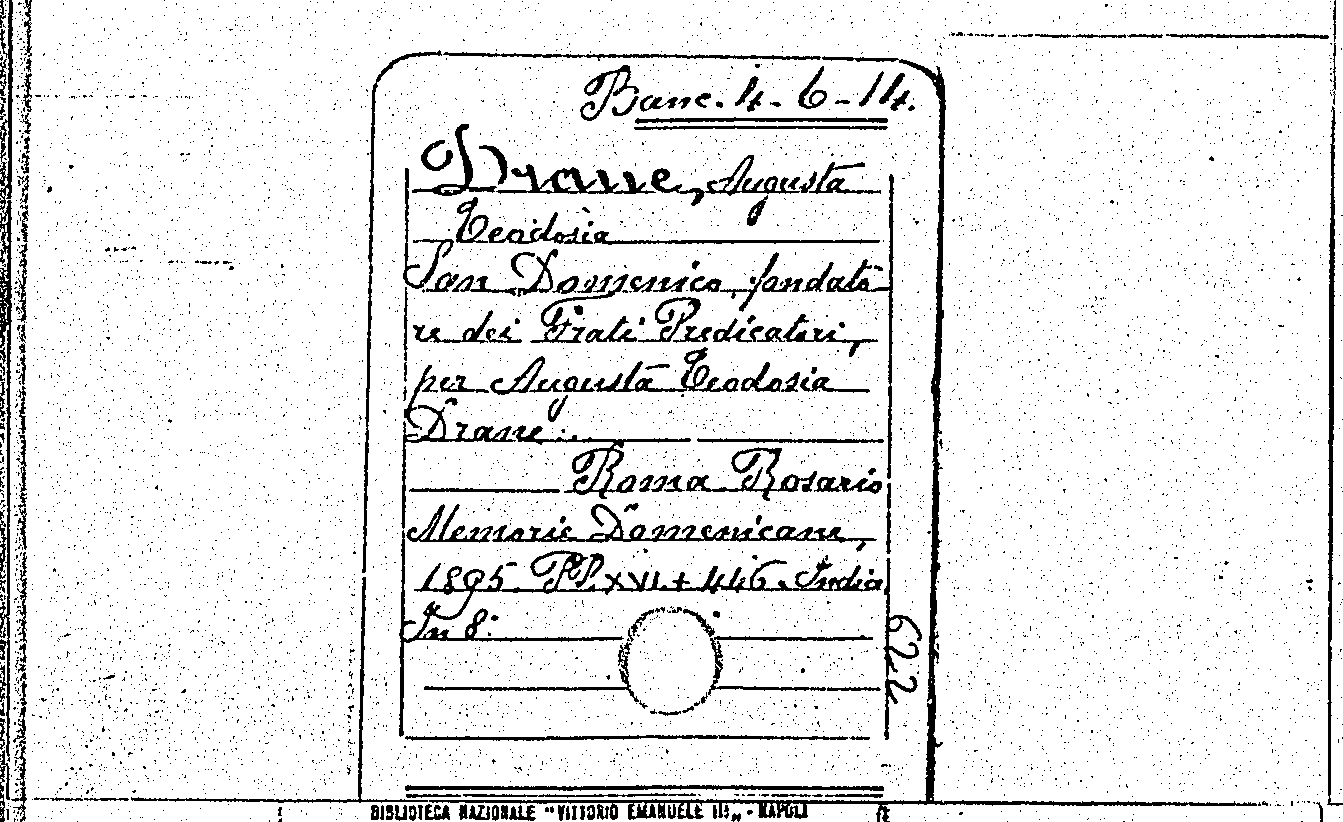 Banc. 4-6-14.
Drane, Augusta
Teodosia
San Domenico, fondato-
re dei Frati Predicatori,
per Augusta Teodosia
Drane:.
Roma Rosario
Memorie Domenicane,
1895. PP. XVI + 446. India
In 8:
622
BIBLIOTECA NAZIONALE "VITTORIO EMANUELE III„ - NAPOLI